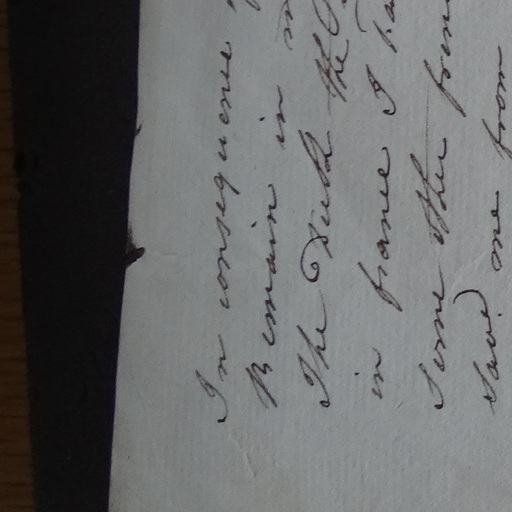 In consequence
Remain in
The Dutch the
in france I ha
Some other frien
Save me from